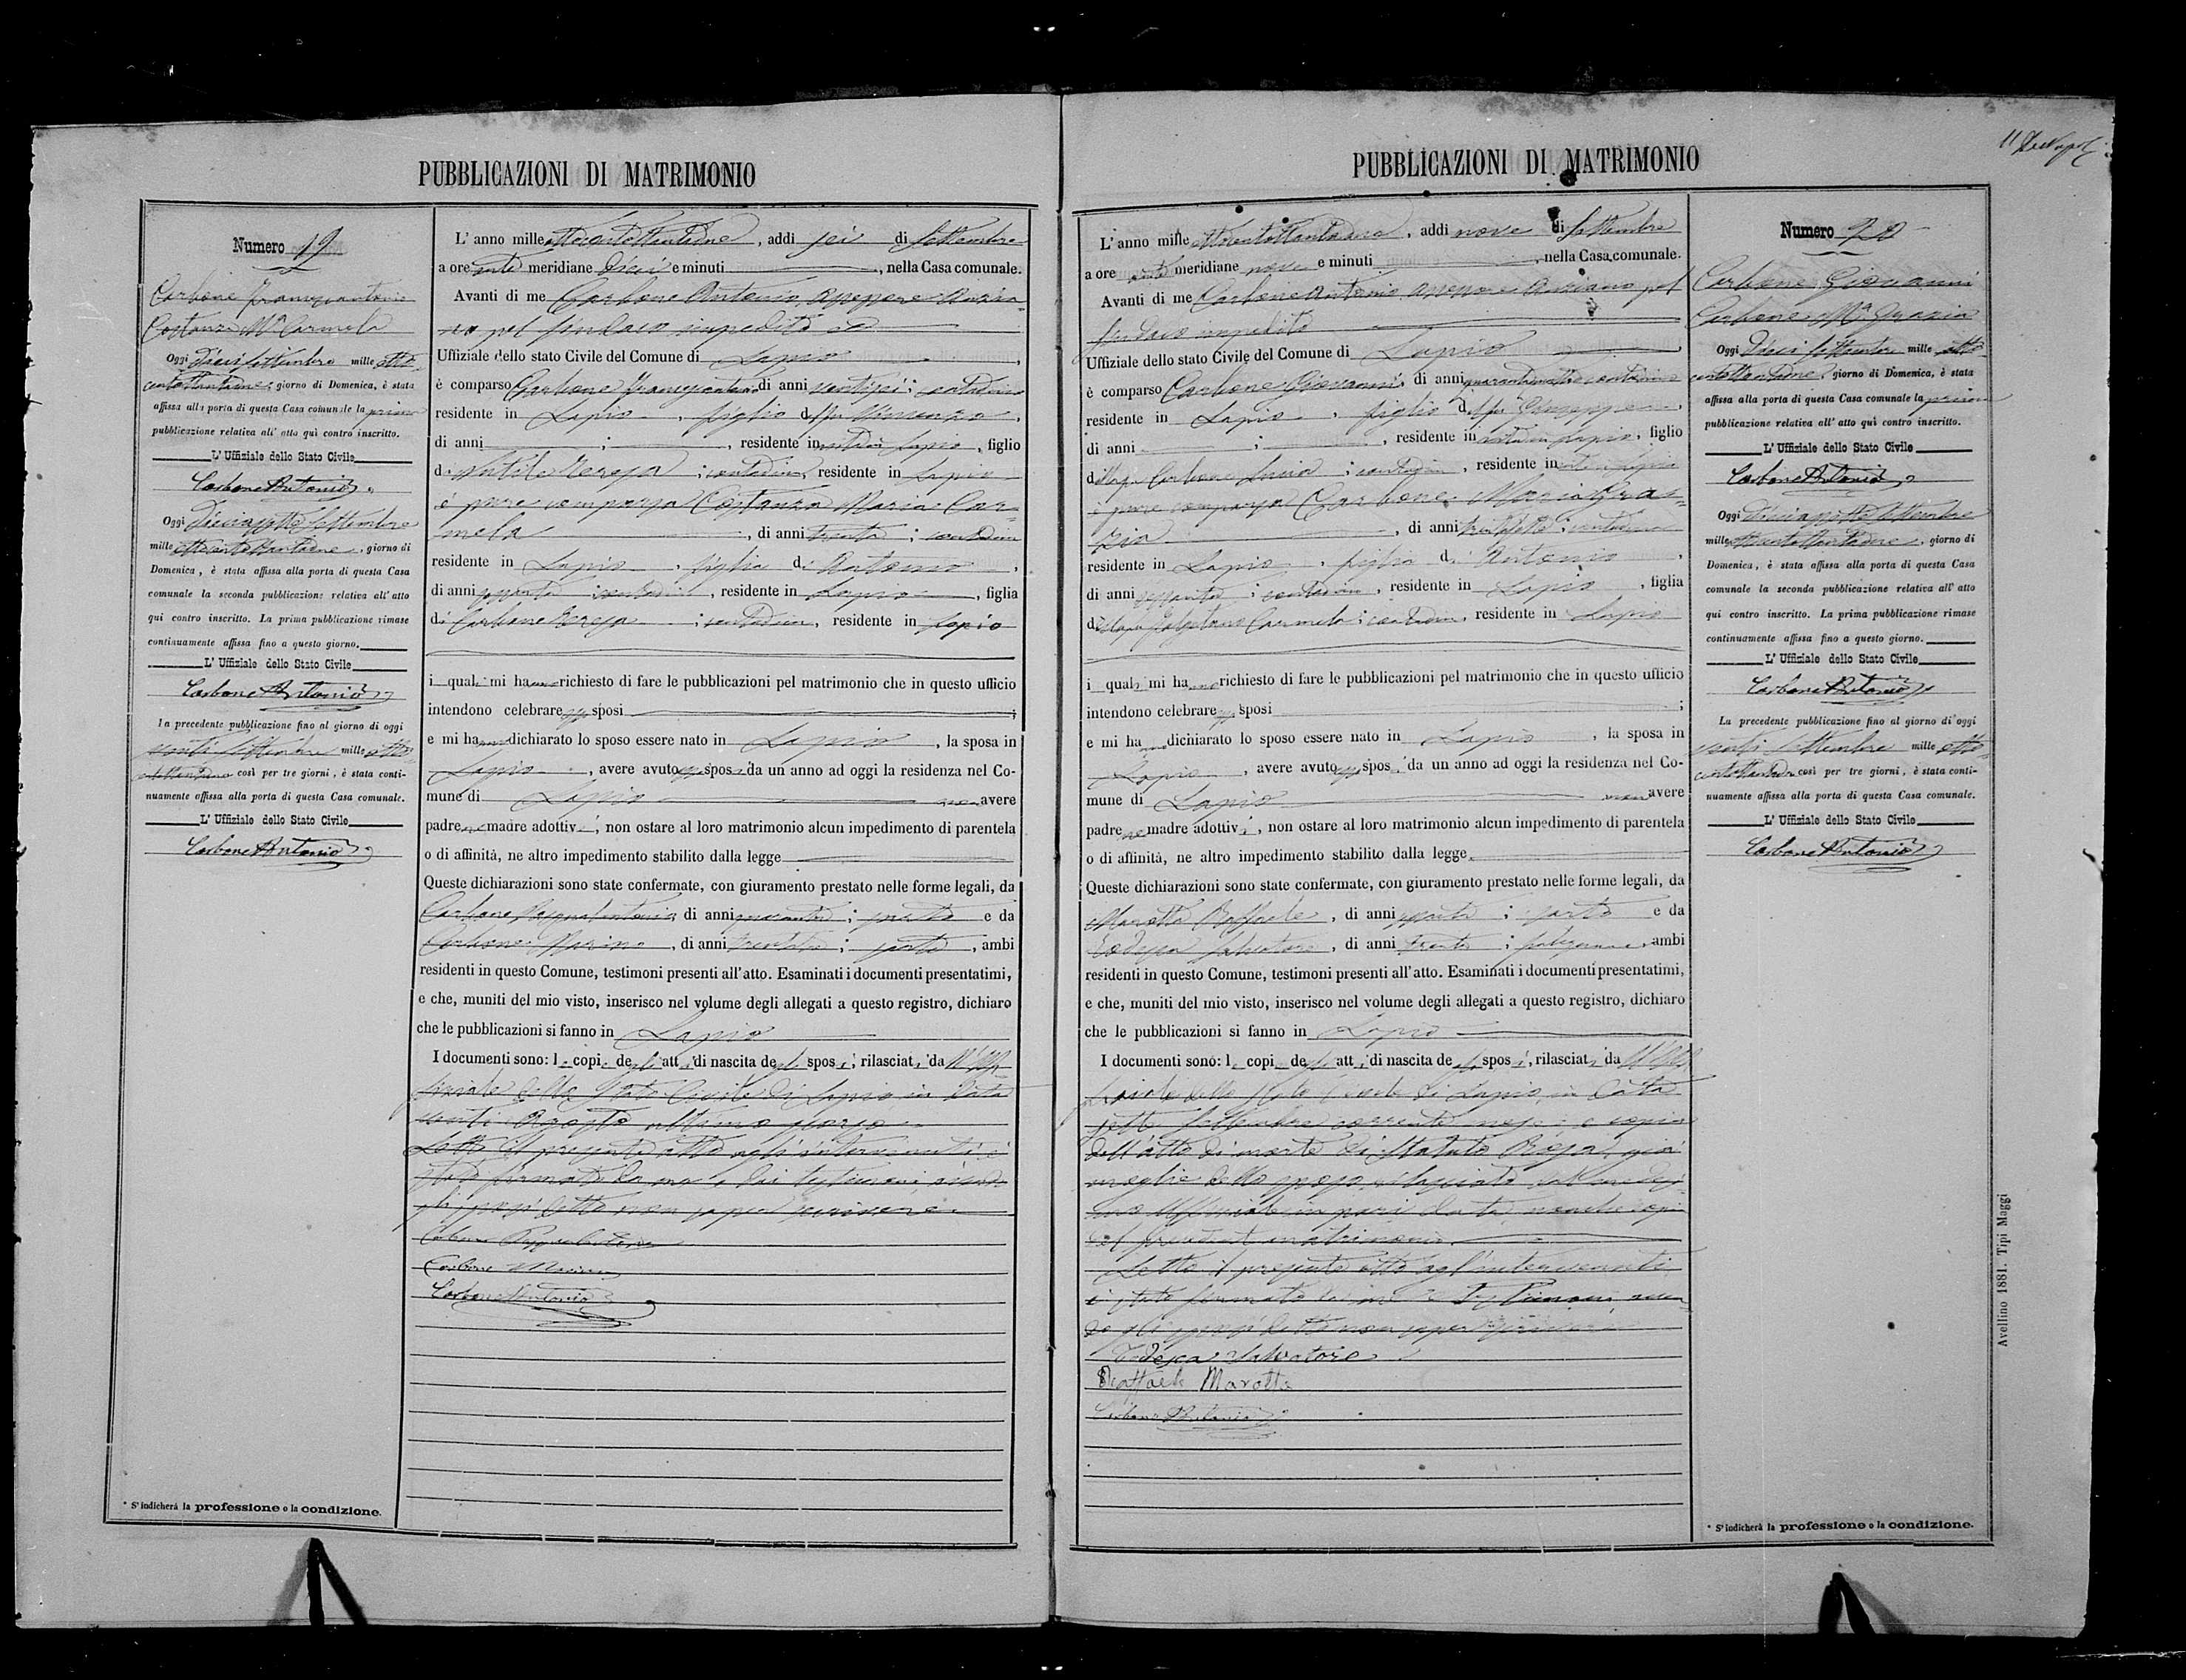 11
PUBBLICAZIONI DI MATRIMONIO
Numero 19
Carbone Francescantonio
Costanza Ma Carmela
Oggi Dieci Settembre mille otto-
centottantadue, giorno di Domenica, è stata
affissa alla porta di questa Casa comunale la prima
pubblicazione relativa all' atto quì contro inscritto.
L' Uffiziale dello Stato Civile
Carbone Antonio
Oggi Diciassette Settembre
mille ottocentottantadue, giorno di
Domenica, è stata affissa alla porta di questa Casa
comunale la seconda pubblicazione relativa all' atto
qui contro inscritto. La prima pubblicazione rimase
continuamente affissa fino a questo giorno.
L' Uffiziale dello Stato Civile
Carbone Antonio
La precedente pubblicazione fino al giorno di oggi
venti Settembre mille otto-
centottantadue così per tre giorni, è stata conti-
nuamente affissa alla porta di questa Casa comunale.
L' Uffiziale dello Stato Civile
Carbone Antonio
* S' indicherà la professione o la condizione.
L' anno mille ottocentottantadue, addi sei di Settembre
a ore anti meridiane dieci e minuti , nella Casa comunale.
Avanti di me Carbone Antonio, assessore anzia-
no pel sindaco impedito
Uffiziale dello stato Civile del Comune di Lapio
è comparso Carbone Francescantonio di anni ventisei; contadino
residente in Lapio, figlio del fu Vincenzo,
di anni ; , residente in vita in Lapio, figlio
di Teresa; contadina, residente in Lapio
è pure comparsa Costanza Maria Car-
mela, di anni trenta; contadina
residente in Lapio, figlia di Antonio,
di anni sessanta; contadino, residente in Lapio, figlia
di Carbone Teresa; contadina, residente in Lapio
i quali mi hanno richiesto di fare le pubblicazioni pel matrimonio che in questo ufficio
intendono celebrare essi sposi ;
e mi hanno dichiarato lo sposo essere nato in Lapio, la sposa in
Lapio, avere avuto essi sposi da un anno ad oggi la residenza nel Co-
mune di Lapio non avere
padre ne madre adottivi, non ostare al loro matrimonio alcun impedimento di parentela
o di affinità, ne altro impedimento stabilito dalla legge
Queste dichiarazioni sono state confermate, con giuramento prestato nelle forme legali, da
Carbone Pasqualantonio, di anni ; sarto e da
Carbone Marino, di anni ; sarto, ambi
residenti in questo Comune, testimoni presenti all' atto. Esaminati i documenti presentatimi,
e che, muniti del mio visto, inserisco nel volume degli allegati a questo registro, dichiaro
che le pubblicazioni si fanno in Lapio
I documenti sono: le copie degli atti di nascita degli sposi, rilasciati da ll'Uf-
fiziale dello Stato Civile di Lapio in data
venti Agosto ultimo scorso.
Letto il presente atto agli intervenuti è
stato firmato da me e dai testimoni, avendo
gli sposi detto non saper scrivere.
Carbone Pasqualantonio
Carbone Marino
Carbone Antonio
PUBBLICAZIONI DI MATRIMONIO
L' anno mille ottocentottantadue, addi nove di Settembre
a ore anti meridiane nove e minuti , nella Casa comunale.
Avanti di me Carbone Antonio assessore anziano pel
sindaco impedito
Uffiziale dello stato Civile del Comune di Lapio
è comparso Carbone Giovanni, di anni quarantaquattro contadino
residente in Lapio, figlio del fu Giuseppe,
di anni ; , residente in vita in Lapio, figlio
della fu Carbone Lucia; contadina, residente in vita in Lapio
è pure comparsa Carbone Maria Gra-
zia, di anni trentotto; contadina
residente in Lapio, figlia di Antonio,
di anni sessanta; contadino, residente in Lapio, figlia
della fu Carmela; contadina, residente in Lapio
i quali mi hanno richiesto di fare le pubblicazioni pel matrimonio che in questo ufficio
intendono celebrare essi sposi ;
e mi hanno dichiarato lo sposo essere nato in Lapio, la sposa in
Lapio, avere avuto essi sposi da un anno ad oggi la residenza nel Co-
mune di Lapio non avere
padre ne madre adottivi, non ostare al loro matrimonio alcun impedimento di parentela
o di affinità, ne altro impedimento stabilito dalla legge
Queste dichiarazioni sono state confermate, con giuramento prestato nelle forme legali, da
Marotta Raffaele, di anni ; sarto e da
Todesca Salvatore, di anni trenta; falegname, ambi
residenti in questo Comune, testimoni presenti all' atto. Esaminati i documenti presentatimi,
e che, muniti del mio visto, inserisco nel volume degli allegati a questo registro, dichiaro
che le pubblicazioni si fanno in Lapio
I documenti sono: le copie degli atti di nascita degli sposi, rilasciati da ll'Uf-
fiziale dello Stato Civile di Lapio in data
sette Settembre corrente mese; e copia
dell'atto di morte di Rosa, già
moglie dello sposo, rilasciato dal medesi-
mo Uffiziale in pari data, nonchè copia
del precedente matrimonio.
Letto il presente atto agl'intervenuti
è stato firmato da me e testimoni, aven-
do gli sposi detto non saper scrivere
Todesca Salvatore
Raffaele Marotta
Carbone Antonio
Numero 20
Carbone Giovanni
Carbone Ma Grazia
Oggi Dieci Settembre mille otto-
centottantadue, giorno di Domenica, è stata
affissa alla porta di questa Casa comunale la prima
pubblicazione relativa all' atto quì contro inscritto.
L' Uffiziale dello Stato Civile
Carbone Antonio
Oggi Diciassette Settembre
mille ottocentottantadue, giorno di
Domenica, è stata affissa alla porta di questa Casa
comunale la seconda pubblicazione relativa all' atto
qui contro inscritto. La prima pubblicazione rimase
continuamente affissa fino a questo giorno.
L' Uffiziale dello Stato Civile
Carbone Antonio
La precedente pubblicazione fino al giorno di oggi
venti Settembre mille otto-
centottantadue così per tre giorni, è stata conti-
nuamente affissa alla porta di questa Casa comunale.
L' Uffiziale dello Stato Civile
Carbone Antonio
* S' indicherà la professione o la condizione.
Avellino 1881. Tipi Maggi